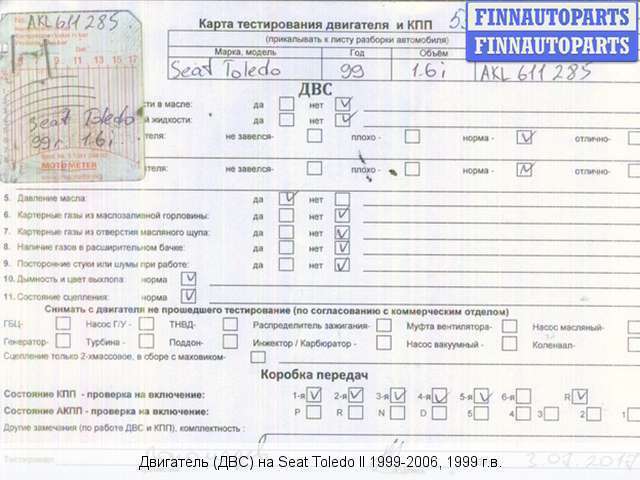 AKL 611285
Карта тестирования двигателя и КПП
FINNAUTOPARTS
FINNAUTOPARTS
(прикалывать к листу разборки автомобиля)
Марка, модель Год Объём
Seat Toledo 99 1.6i AKL 611285
ДВС
Seat Toledo
99г. 1.6i
MOTOMETER
сти в масле: да нет
жидкости: да нет
теля: не завелся- плохо - норма - отлично-
теля: не завелся- плохо - норма - отлично-
5. Давление масла: да нет
6. Картерные газы из маслозаливной горловины: да нет
7. Картерные газы из отверстия масляного щупа: да нет
8. Наличие газов в расширительном бачке: да нет
9. Посторонние стуки или шумы при работе: да нет
10. Дымность и цвет выхлопа: норма
11. Состояние сцепления: норма
Снимать с двигателя не прошедшего тестирование (по согласованию с коммерческим отделом)
ГБЦ- Насос Г/У - ТНВД- Распределитель зажигания- Муфта вентилятора- Насос масляный-
Генератор- Турбина - Поддон- Инжектор / Карбюратор - Насос вакуумный - Коленвал-
Сцепление только 2-хмассовое, в сборе с маховиком-
Коробка передач
Состояние КПП - проверка на включение: 1-я 2-я 3-я 4-я 5-я 6-я R
Состояние АКПП - проверка на включение: P R N D 5 4 3 2 1
Другие замечания (по работе ДВС и КПП), комплектность :
Тестировал 3.07.2017
Двигатель (ДВС) на Seat Toledo II 1999-2006, 1999 г.в.